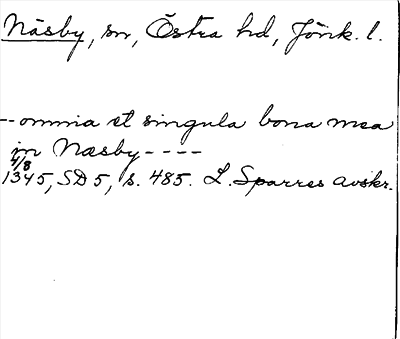 Näsby, sn, Östra hd, Jönk. l.
-- omnia et singula bona mea
in Næsby ----
4/8
1345, SD 5, s. 485. L. Sparres avskr.